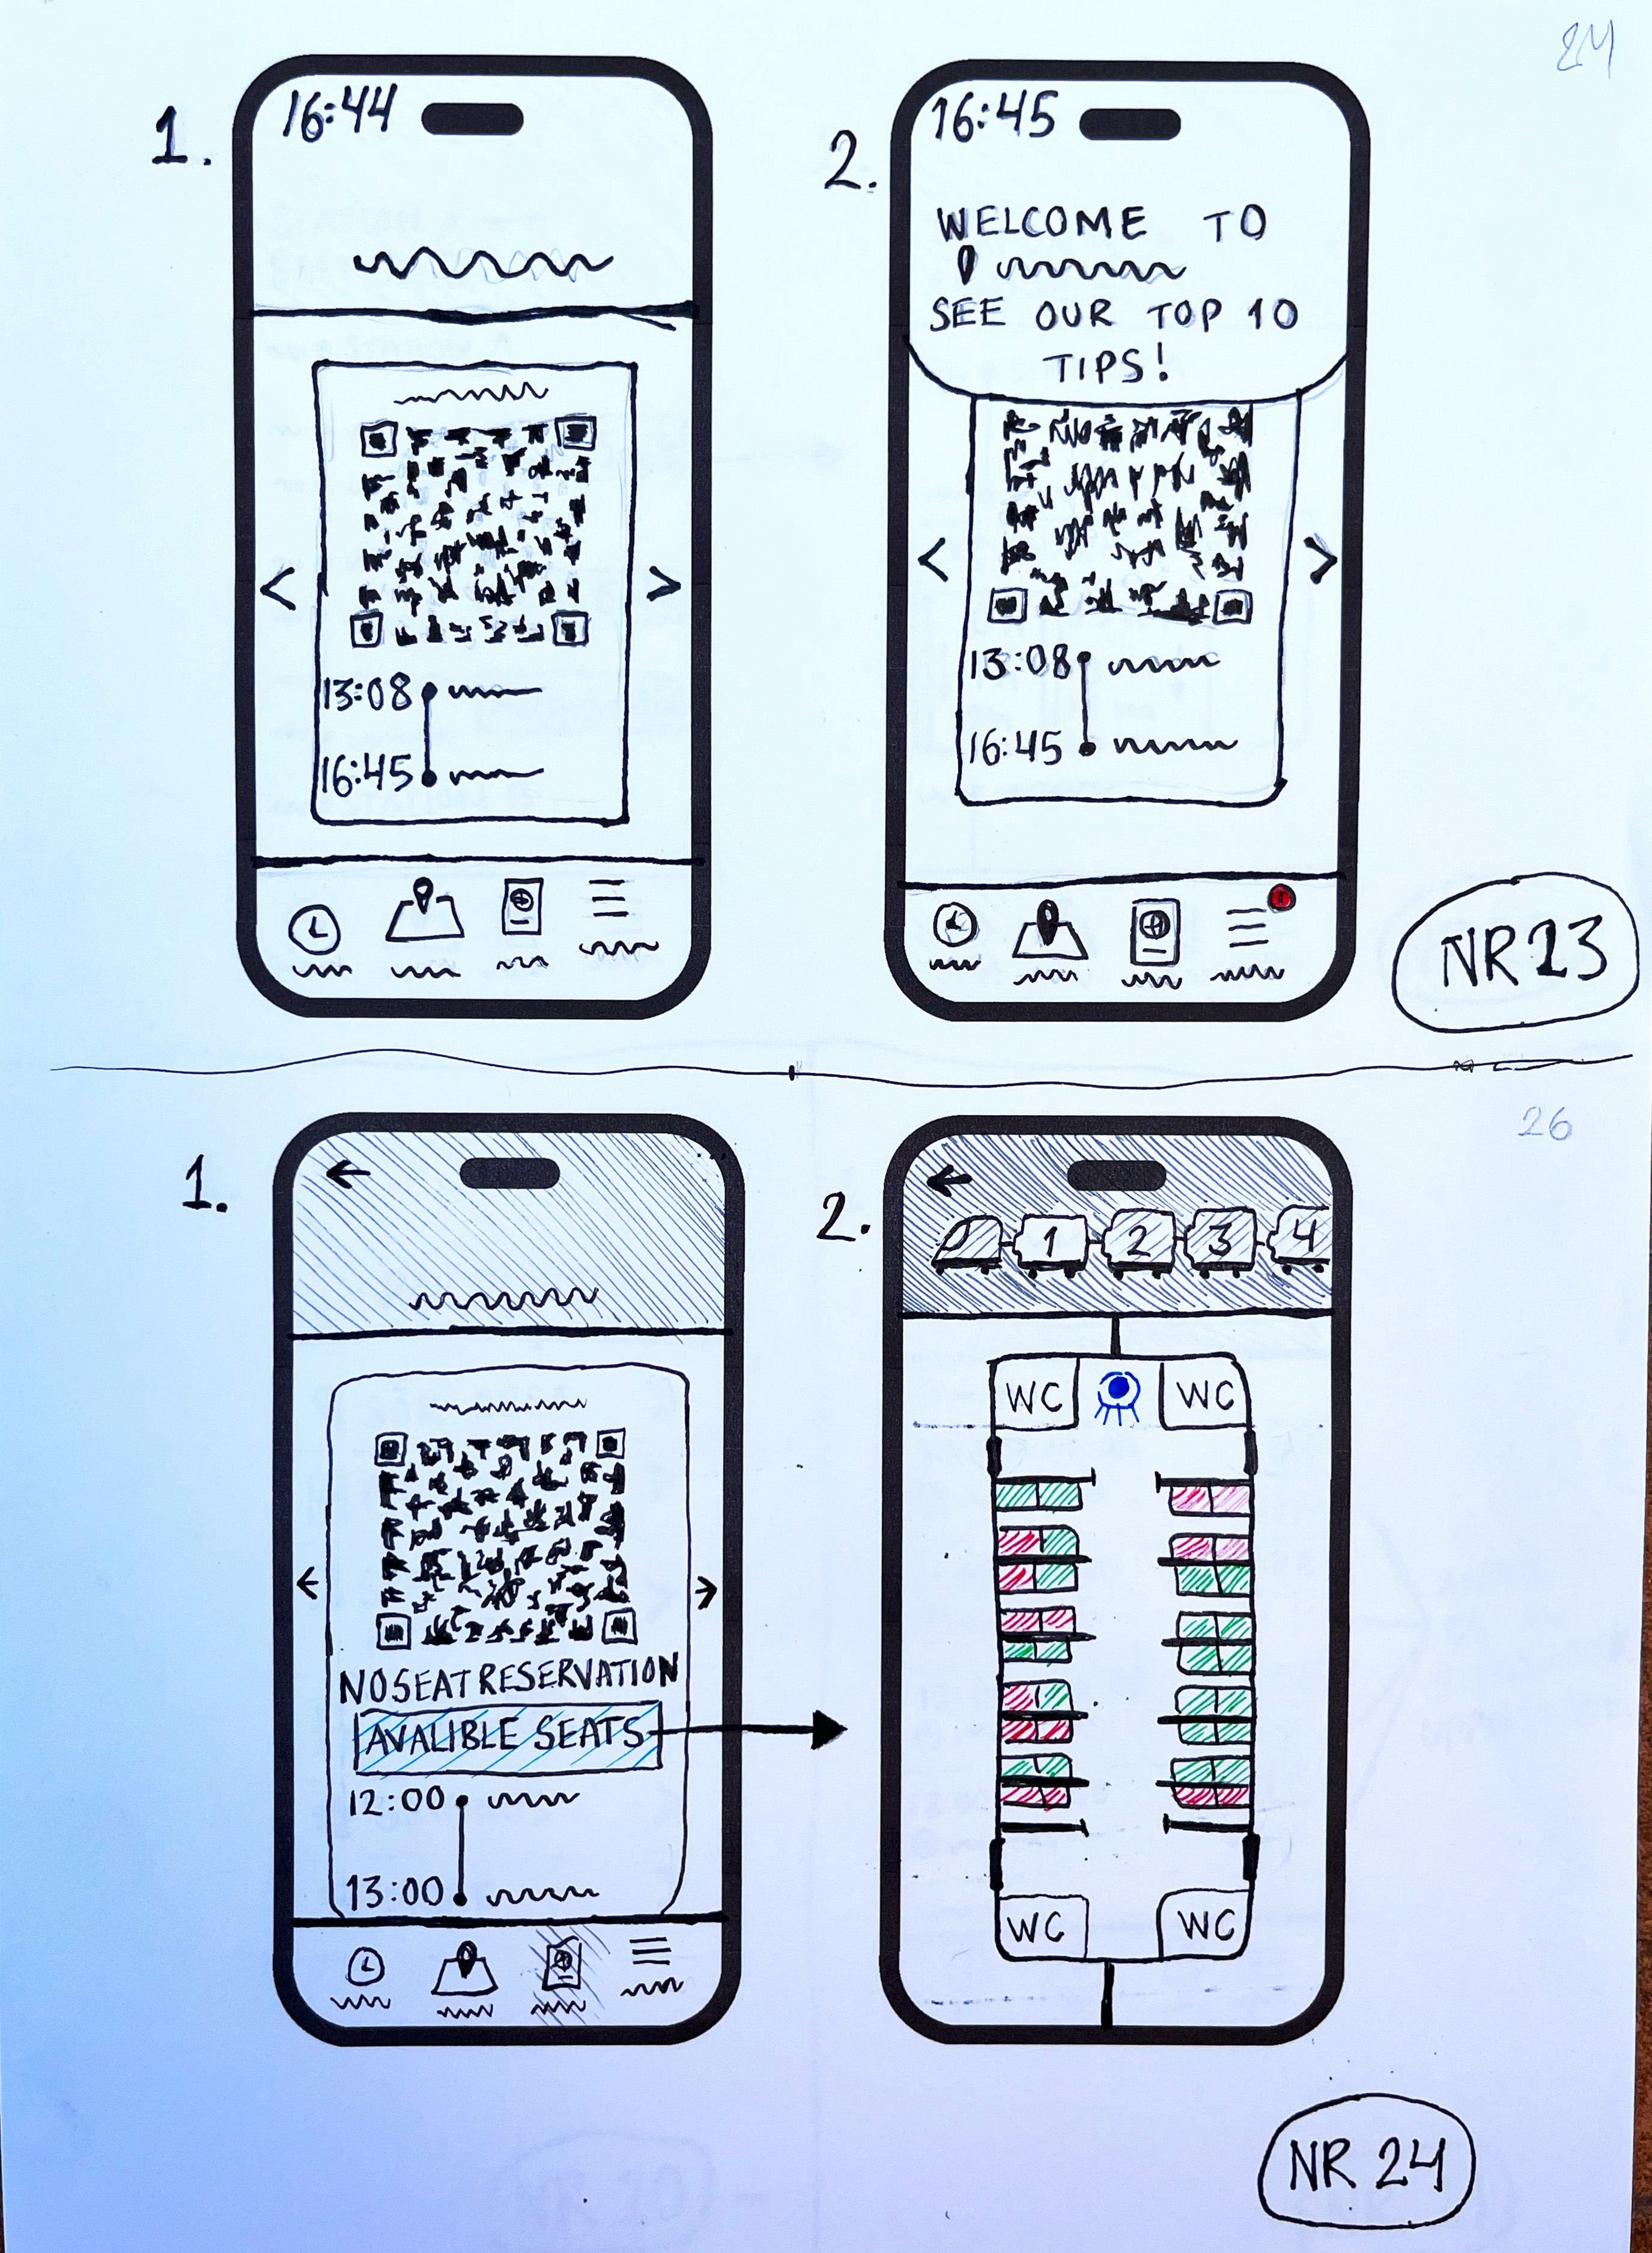 24
1.
16:44
13:08
16:45
2.
16:45
WELCOME TO
SEE OUR TOP 10
TIPS!
13:08
16:45
NR 23
26
1.
NO SEAT RESERVATION
AVALIBLE SEATS
12:00
13:00
2.
1 2 3 4
WC WC
WC WC
NR 24